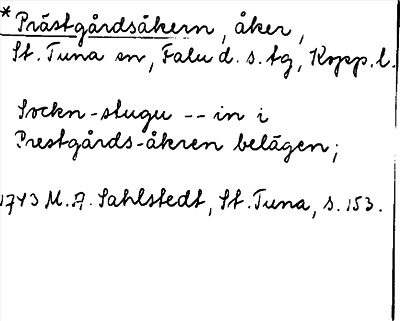 *Prästgårdsåkern, åker,
St. Tuna sn, Falu d. s. tg, Kopp. l.
Sockn-stugu -- in i
Prestgårds-åkren belägen;
1743 M. A. Sahlstedt, St. Tuna, s. 153.